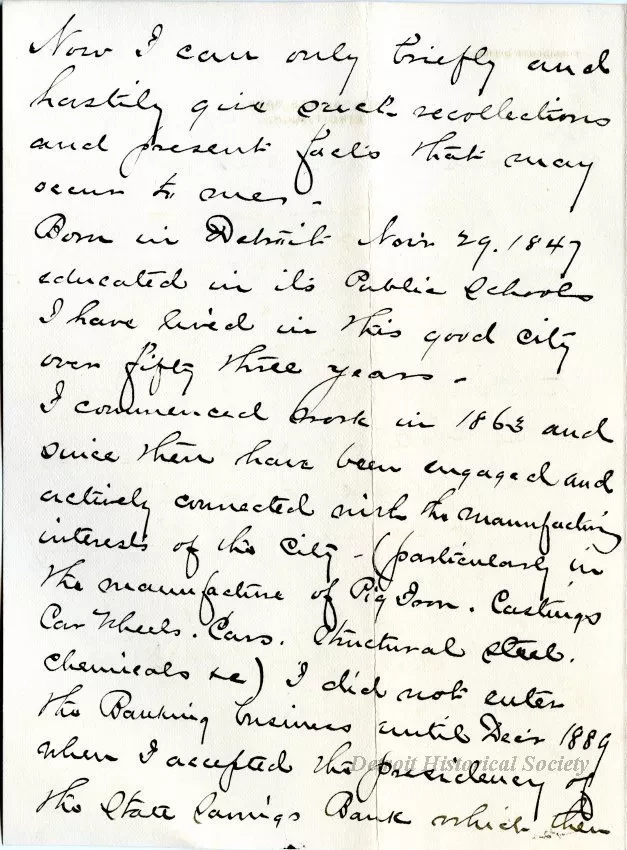 Now I can only briefly and
hastily give such recollections
and present facts that may
occur to me.
Born in Detroit Nov'r 29. 1847
educated in its Public Schools
I have lived in this good city
over fifty three years.
I commenced work in 1863 and
since then have been engaged and
actively connected with the manufacturing
interests of the City - (particularly in
the manufacture of Pig Iron. Castings
Car Wheels. Cars. Structural steel.
chemicals &c) I did not enter
the Banking business until Dec'r 1889
when I accepted the presidency of
Detroit Historical Society
the State Savings Bank which then